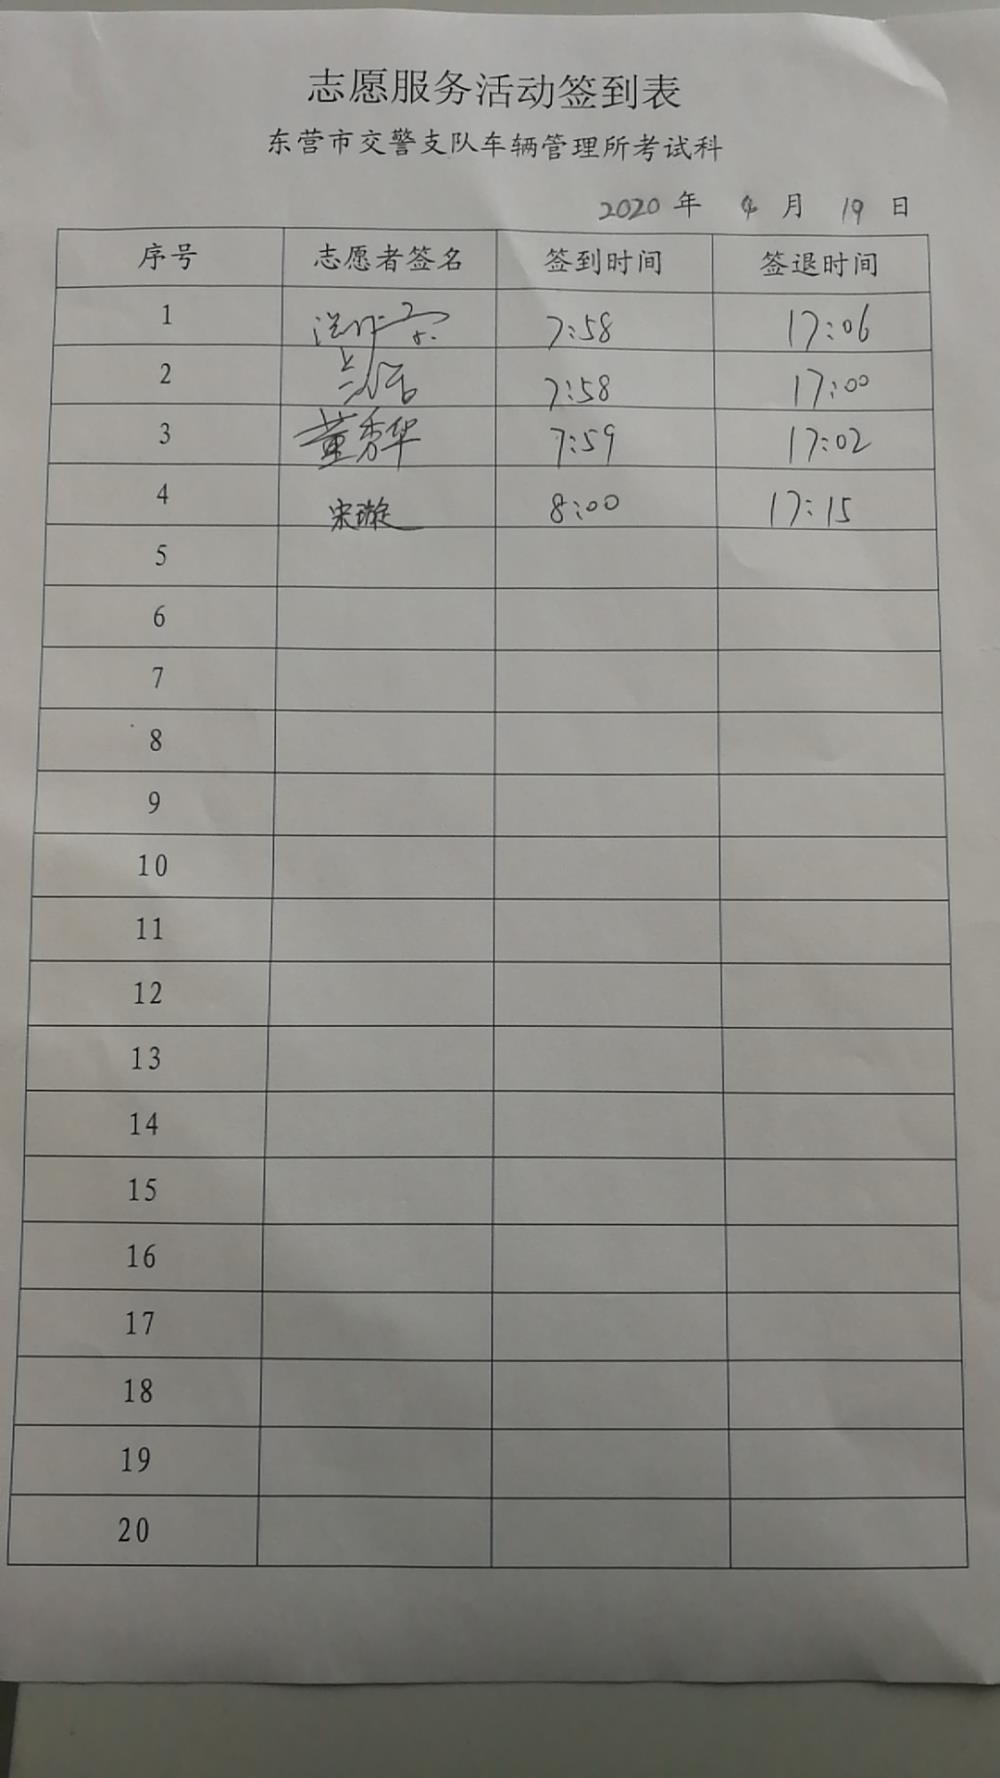 志愿服务活动签到表
东营市交警支队车辆管理所考试科
2020 年 4 月 19 日
序号 志愿者签名 签到时间 签退时间
1 7:58 17:06
2 7:58 17:00
3 董秀华 7:59 17:02
4 宋璇 8:00 17:15
5
6
7
8
9
10
11
12
13
14
15
16
17
18
19
20